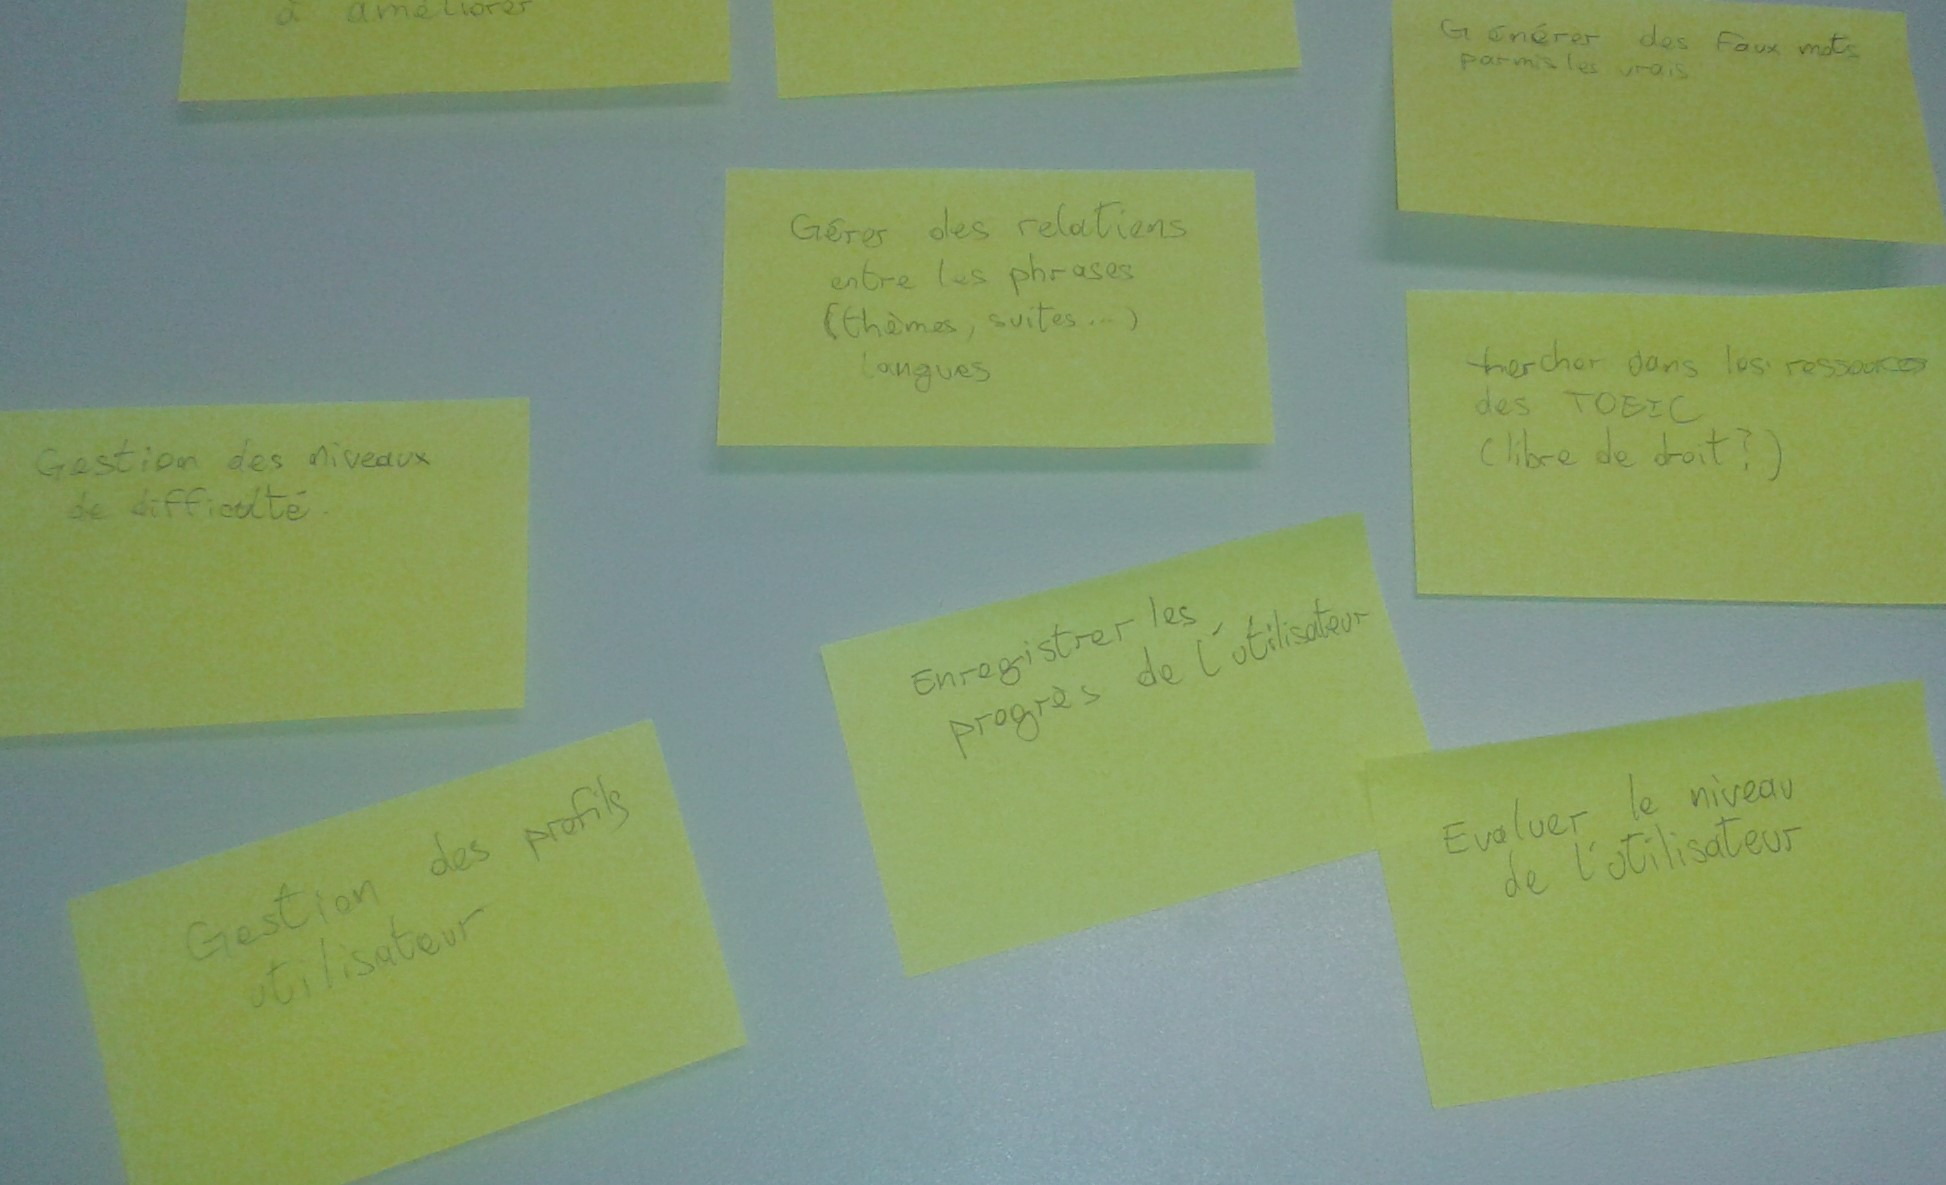 à améliorer
Générer des Faux mots
parmis les vrais
Gérer des relations
entre les phrases
(thèmes, suites...)
langues
chercher dans les ressources
des TOEIC
(libre de droit?)
Gestion des niveaux
de difficulté.
Enregistrer les
progrès de l'utilisateur
Evaluer le niveau
de l'utilisateur
Gestion des profils
utilisateur